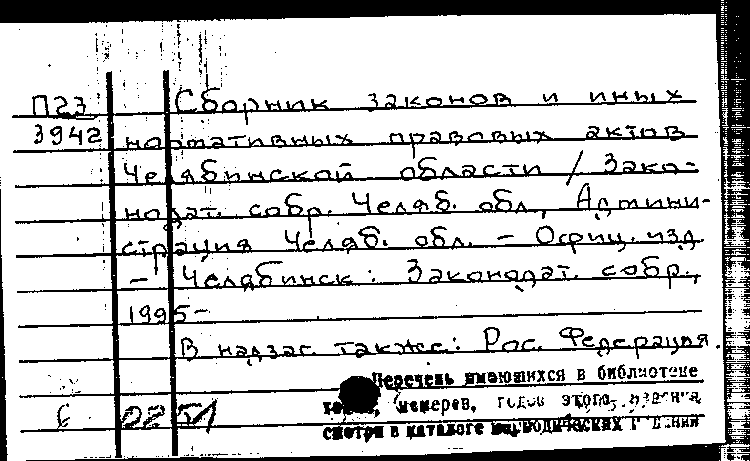 П23 Сборник законов и иных
3942 нормативных правовых актов
Челябинской области / Зако-
нодат. собр. Челяб. обл., Админи-
страция Челяб. обл. - Офиц. изд.
- Челябинск: Законодат. собр.,
1995-
В надзаг. также: Рос. Федерация.
Перечень имеющихся в библиотеке
томов, номеров, годов этого издания
С 0251 смотри в каталоге периодических изданий